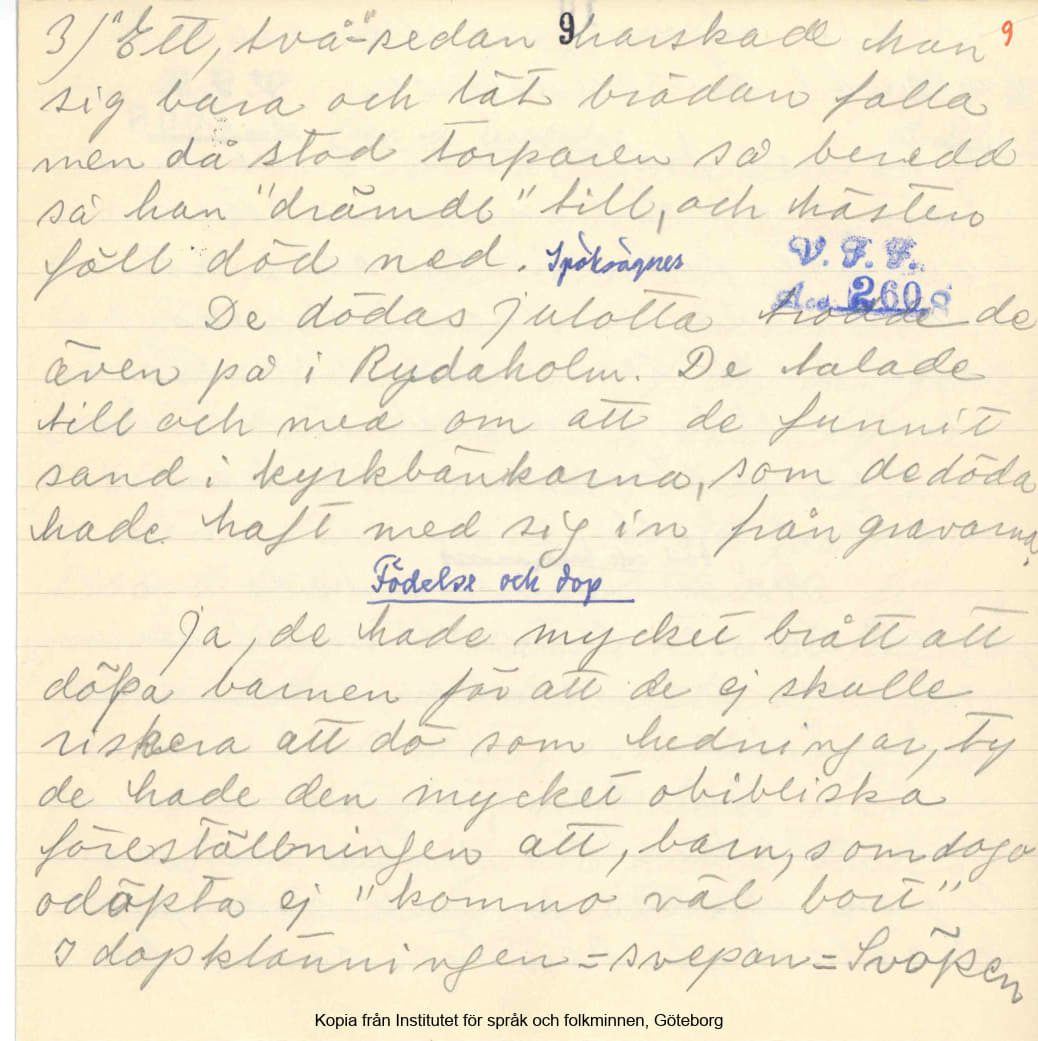 3) "Ett, två"- sedan 9 harskade han 9
sig bara och lät brädan falla
men då stod torparen så beredd
så han "drämde" till, och hästen
föll död ned. Spöksägner
V. F. F.
Acc. 2609
De dödas julotta trodde de
även på i Rydaholm. De talade
till och med om att de funnit
sand i kyrkbänkarna, som de döda
hade haft med sig in från gravarna.
Födelse och dop
Ja, de hade mycket brått att
döpa barnen för att de ej skulle
riskera att dö som hedningar, ty
de hade den mycket obibliska
föreställningen att, barn, som dogo
odöpta ej "kommo väl bort"
I dopklänningen = svepan = Svöpen
Kopia från Institutet för språk och folkminnen, Göteborg